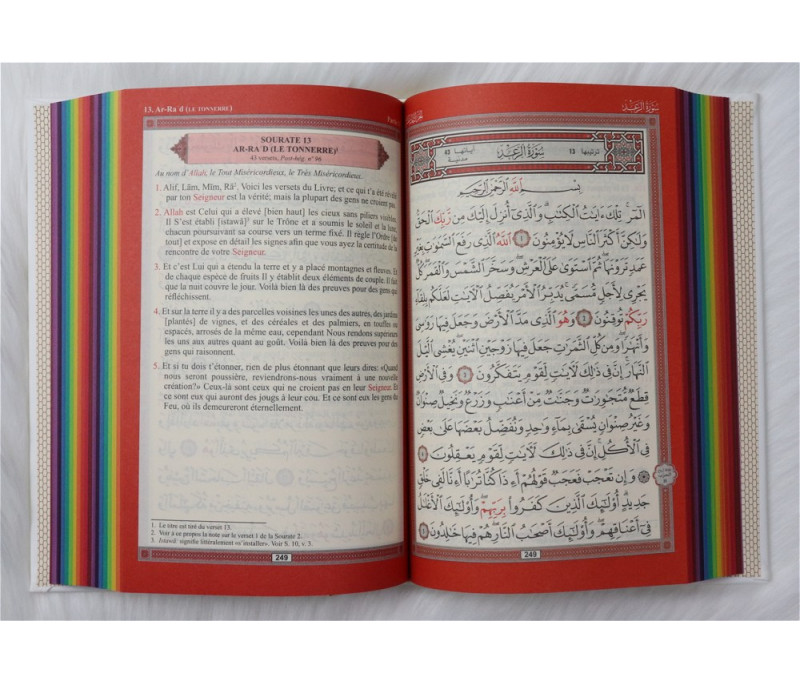 13. Ar-Ra`d (LE TONNERRE)
SOURATE 13
AR-RA`D (LE TONNERRE)¹
43 versets, Post-hég. n° 96
Au nom d'Allah, le Tout Miséricordieux, le Très Miséricordieux.
1. Alif, Lām, Mīm, Rā². Voici les versets du Livre; et ce qui t'a été révélé
par ton Seigneur est la vérité; mais la plupart des gens ne croient pas.
2. Allah est Celui qui a élevé [bien haut] les cieux sans piliers visibles.
Il S'est établi [istawā]³ sur le Trône et a soumis le soleil et la lune,
chacun poursuivant sa course vers un terme fixé. Il règle l'Ordre [de
tout] et expose en détail les signes afin que vous ayez la certitude de la
rencontre de votre Seigneur.
3. Et c'est Lui qui a étendu la terre et y a placé montagnes et fleuves. Et
de chaque espèce de fruits Il y établit deux éléments de couple. Il fait
que la nuit couvre le jour. Voilà bien là des preuves pour des gens qui
réfléchissent.
4. Et sur la terre il y a des parcelles voisines les unes des autres, des jardins
[plantés] de vignes, et des céréales et des palmiers, en touffes ou
espacés, arrosés de la même eau, cependant Nous rendons supérieurs
les uns aux autres quant au goût. Voilà bien là des preuves pour des
gens qui raisonnent.
5. Et si tu dois t'étonner, rien de plus étonnant que leurs dires: «Quand
nous seront poussière, reviendrons-nous vraiment à une nouvelle
création?» Ceux-là sont ceux qui ne croient pas en leur Seigneur. Et
ce sont eux qui auront des jougs à leur cou. Et ce sont eux les gens du
Feu, où ils demeureront éternellement.
1. Le titre est tiré du verset 13.
2. Voir à ce propos la note sur le verset 1 de la Sourate 2.
3. Istawā' signifie littéralement «s'installer». Voir S. 10, v. 3.
249
سُورَةُ الرَّعْدِ
ترتيبها 13
سُورَةُ الرَّعْدِ
آياتها 43
مدنية
بِسْمِ اللَّهِ الرَّحْمَٰنِ الرَّحِيمِ
الٓمٓر ۚ تِلْكَ ءَايَٰتُ ٱلْكِتَٰبِ ۗ وَٱلَّذِىٓ أُنزِلَ إِلَيْكَ مِن رَّبِّكَ ٱلْحَقُّ
وَلَٰكِنَّ أَكْثَرَ ٱلنَّاسِ لَا يُؤْمِنُونَ ١ ٱللَّهُ ٱلَّذِى رَفَعَ ٱلسَّمَٰوَٰتِ بِغَيْرِ
عَمَدٍ تَرَوْنَهَا ۖ ثُمَّ ٱسْتَوَىٰ عَلَى ٱلْعَرْشِ ۖ وَسَخَّرَ ٱلشَّمْسَ وَٱلْقَمَرَ ۖ كُلٌّ
يَجْرِى لِأَجَلٍ مُّسَمًّى ۚ يُدَبِّرُ ٱلْأَمْرَ يُفَصِّلُ ٱلْءَايَٰتِ لَعَلَّكُم بِلِقَآءِ
رَبِّكُمْ تُوقِنُونَ ٢ وَهُوَ ٱلَّذِى مَدَّ ٱلْأَرْضَ وَجَعَلَ فِيهَا رَوَٰسِىَ
وَأَنْهَٰرًا ۖ وَمِن كُلِّ ٱلثَّمَرَٰتِ جَعَلَ فِيهَا زَوْجَيْنِ ٱثْنَيْنِ ۖ يُغْشِى ٱلَّيْلَ
ٱلنَّهَارَ ۚ إِنَّ فِى ذَٰلِكَ لَءَايَٰتٍ لِّقَوْمٍ يَتَفَكَّرُونَ ٣ وَفِى ٱلْأَرْضِ
قِطَعٌ مُّتَجَٰوِرَٰتٌ وَجَنَّٰتٌ مِّنْ أَعْنَٰبٍ وَزَرْعٌ وَنَخِيلٌ صِنْوَانٌ
وَغَيْرُ صِنْوَانٍ يُسْقَىٰ بِمَآءٍ وَٰحِدٍ وَنُفَضِّلُ بَعْضَهَا عَلَىٰ بَعْضٍ
فِى ٱلْأُكُلِ ۚ إِنَّ فِى ذَٰلِكَ لَءَايَٰتٍ لِّقَوْمٍ يَعْقِلُونَ ٤
۞ وَإِن تَعْجَبْ فَعَجَبٌ قَوْلُهُمْ أَءِذَا كُنَّا تُرَٰبًا أَءِنَّا لَفِى خَلْقٍ
جَدِيدٍ ۗ أُو۟لَٰٓئِكَ ٱلَّذِينَ كَفَرُوا۟ بِرَبِّهِمْ ۖ وَأُو۟لَٰٓئِكَ ٱلْأَغْلَٰلُ
فِىٓ أَعْنَاقِهِمْ ۖ وَأُو۟لَٰٓئِكَ أَصْحَٰبُ ٱلنَّارِ ۖ هُمْ فِيهَا خَٰلِدُونَ ٥
249